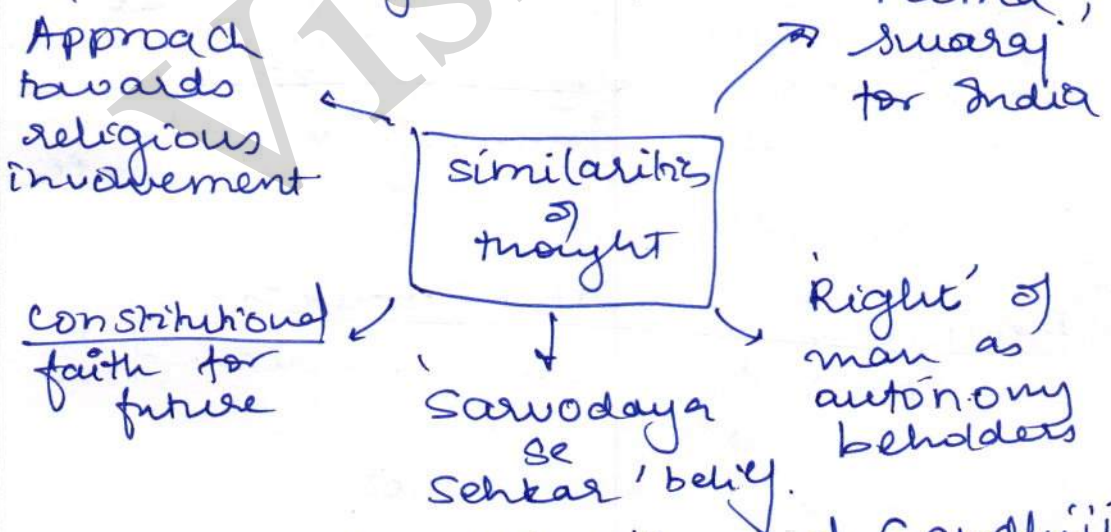 Approach
towards
religious
invovement
swaraj'
for India
similarities
of
thought
constitutional
faith for
future
'Sarvodaya
se
Sehkar' belief.
'Right' of
man as
autonomy
beholders
Gandhiji